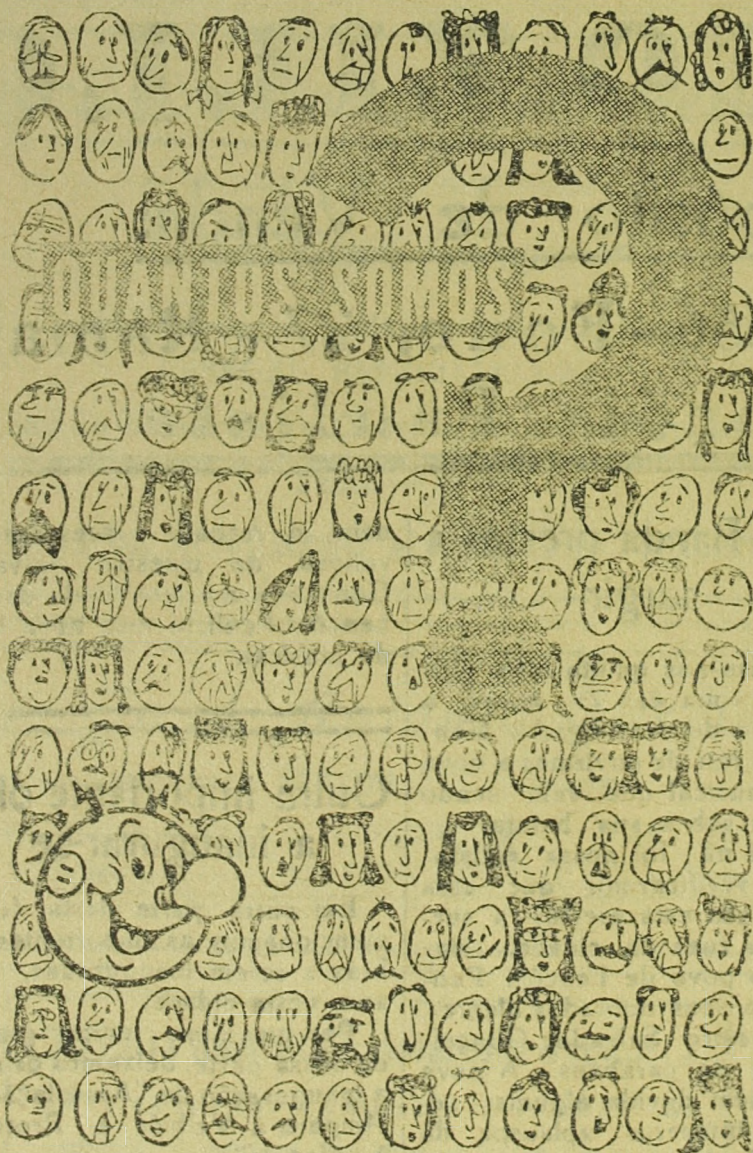 QUANTOS SOMOS